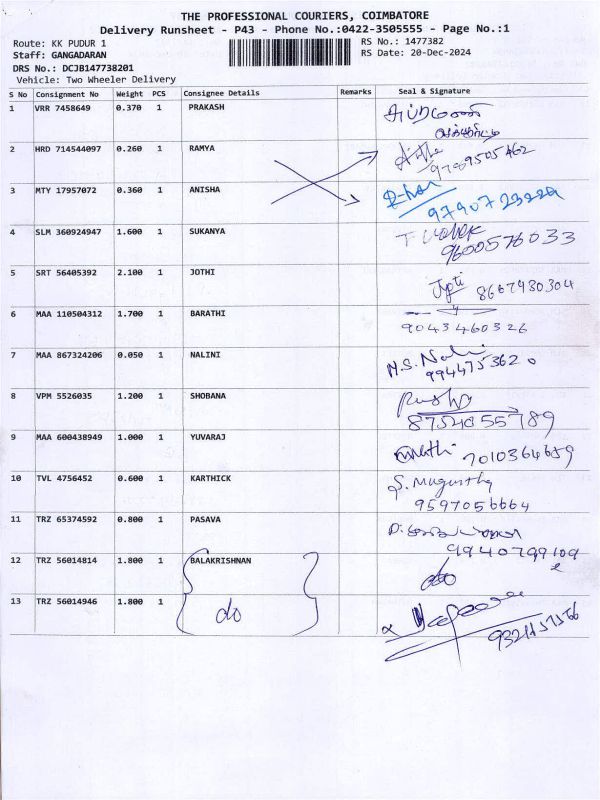 THE PROFESSIONAL COURIERS, COIMBATORE
Delivery Runsheet - P43 - Phone No.:0422-3505555 - Page No.:1
Route: KK PUDUR 1 RS No.: 1477382
Staff: GANGADARAN RS Date: 20-Dec-2024
DRS No.: DCJB147738201
Vehicle: Two Wheeler Delivery
S No Consignment No Weight PCS Consignee Details Remarks Seal & Signature
1 VRR 7458649 0.370 1 PRAKASH
2 HRD 714544097 0.260 1 RAMYA 9789505462
3 MTY 17957072 0.360 1 ANISHA
4 SLM 360924947 1.600 1 SUKANYA 9600576033
5 SRT 56405392 2.100 1 JOTHI Jyoti 8667430304
6 MAA 110504312 1.700 1 BARATHI 9043460326
7 MAA 867324206 0.050 1 NALINI 9944753620
8 VPM 5526035 1.200 1 SHOBANA
9 MAA 600438949 1.000 1 YUVARAJ 7010364689
10 TVL 4756452 0.600 1 KARTHICK 9597056664
11 TRZ 65374592 0.800 1 PASAVA 9940799109
12 TRZ 56014814 1.800 1 BALAKRISHNAN do
13 TRZ 56014946 1.800 1 do